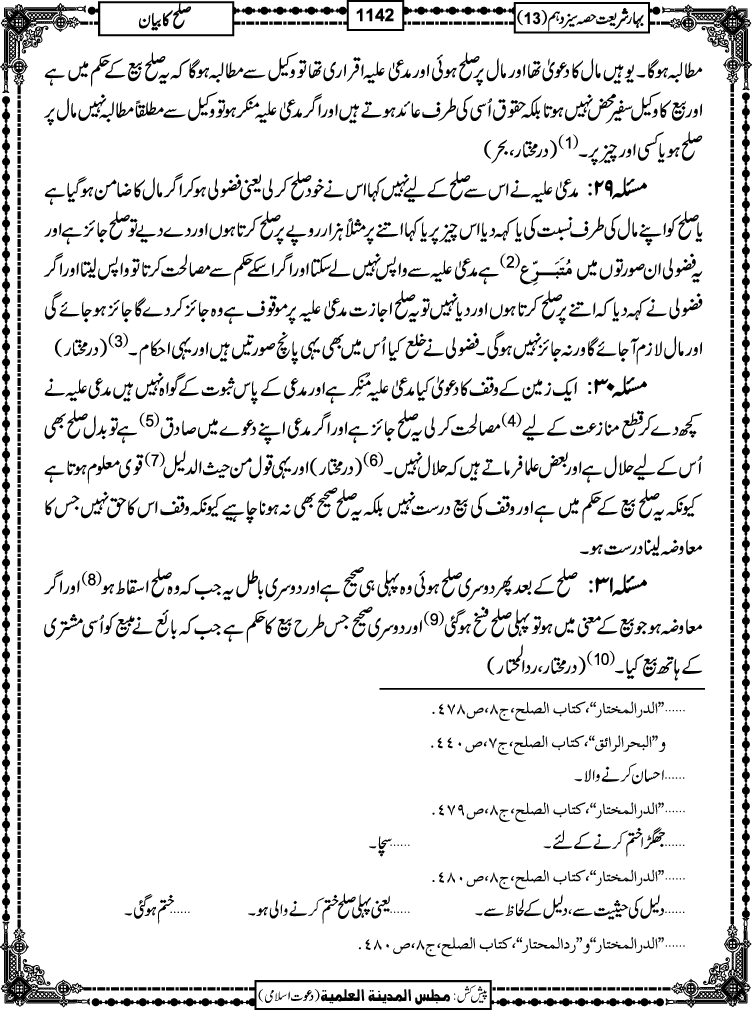 بہار شریعت حصہ سیزدہم (13)
1142
صلح کا بیان
مطالبہ ہوگا۔ یوہیں مال کا دعویٰ تھا اور مال پر صلح ہوئی اور مدعیٰ علیہ اقراری تھا تو وکیل سے مطالبہ ہوگا کہ یہ صلح بیع کے حکم میں ہے
اور بیع کا وکیل سفیر محض نہیں ہوتا بلکہ حقوق اُسی کی طرف عائد ہوتے ہیں اور اگر مدعیٰ علیہ منکر ہو تو وکیل سے مطلقاً مطالبہ نہیں مال پر
صلح ہو یا کسی اور چیز پر۔(1) (درمختار، بحر)
مسئلہ ۲۹: مدعیٰ علیہ نے اس سے صلح کے لیے نہیں کہا اس نے خود صلح کرلی یعنی فضولی ہو کر اگر مال کا ضامن ہو گیا ہے
یا صلح کو اپنے مال کی طرف نسبت کی یا کہہ دیا اس چیز پر یا کہا اتنے پر مثلاً ہزار روپے پر صلح کرتا ہوں اور دے دیے تو صلح جائز ہے اور
یہ فضولی ان صورتوں میں مُتَبَرِّع (2) ہے مدعیٰ علیہ سے واپس نہیں لے سکتا اور اگر اسکے حکم سے مصالحت کرتا تو واپس لیتا اور اگر
فضولی نے کہہ دیا کہ اتنے پر صلح کرتا ہوں اور دیا نہیں تو یہ صلح اجازت مدعیٰ علیہ پر موقوف ہے وہ جائز کردے گا جائز ہو جائے گی
اور مال لازم آجائے گا ورنہ جائز نہیں ہوگی۔ فضولی نے خلع کیا اُس میں بھی یہی پانچ صورتیں ہیں اور یہی احکام۔(3) (درمختار)
مسئلہ ۳۰: ایک زمین کے وقف کا دعویٰ کیا مدعیٰ علیہ مُنکِر ہے اور مدعی کے پاس ثبوت کے گواہ نہیں ہیں مدعی علیہ نے
کچھ دے کر قطع منازعت کے لیے (4) مصالحت کرلی یہ صلح جائز ہے اور اگر مدعی اپنے دعوے میں صادق (5) ہے تو بدل صلح بھی
اُس کے لیے حلال ہے اور بعض علما فرماتے ہیں کہ حلال نہیں۔(6) (درمختار) اور یہی قول من حیث الدلیل (7) قوی معلوم ہوتا ہے
کیونکہ یہ صلح بیع کے حکم میں ہے اور وقف کی بیع درست نہیں بلکہ یہ صلح صحیح بھی نہ ہونا چاہیے کیونکہ وقف اس کا حق نہیں جس کا
معاوضہ لینا درست ہو۔
مسئلہ ۳۱: صلح کے بعد پھر دوسری صلح ہوئی وہ پہلی ہی صحیح ہے اور دوسری باطل یہ جب کہ وہ صلح اسقاط ہو (8) اور اگر
معاوضہ ہو جو بیع کے معنی میں ہو تو پہلی صلح فسخ ہوگئی (9) اور دوسری صحیح جس طرح بیع کا حکم ہے جب کہ بائع نے مبیع کو اُسی مشتری
کے ہاتھ بیع کیا۔(10) (درمختار، ردالمحتار)
......”الدرالمختار“، کتاب الصلح، ج۸، ص۴۷۸.
و ”البحرالرائق“، کتاب الصلح، ج۷، ص۴۴۰.
......احسان کرنے والا۔
......”الدرالمختار“، کتاب الصلح، ج۸، ص۴۷۹.
......جھگڑا ختم کرنے کے لئے۔ ......سچا۔
......”الدرالمختار“، کتاب الصلح، ج۸، ص۴۸۰.
......دلیل کی حیثیت سے، دلیل کے لحاظ سے۔ ......یعنی پہلی صلح ختم کرنے والی ہو۔ ......ختم ہوگئی۔
......”الدرالمختار“ و ”ردالمحتار“، کتاب الصلح، ج۸، ص۴۸۰.
پیش کش: مجلس المدینۃ العلمیۃ (دعوت اسلامی)